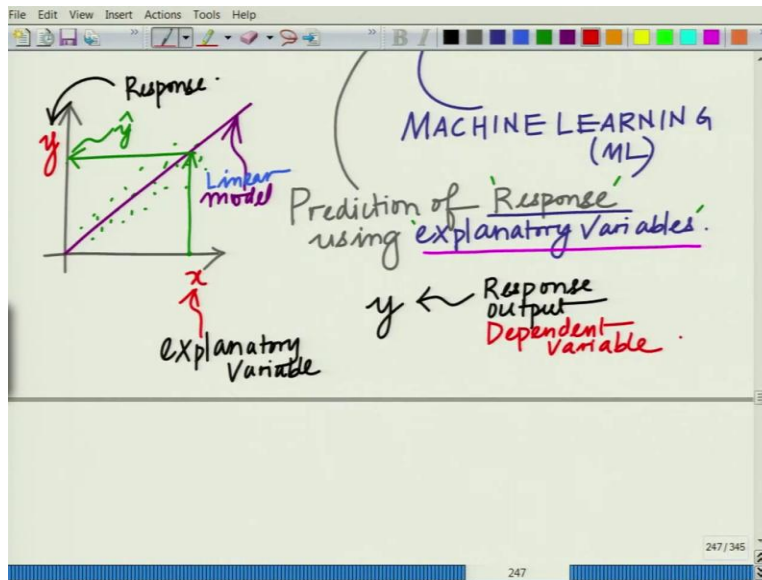 File Edit View Insert Actions Tools Help
Response.
y
ŷ
Linear
model
x
explanatory
Variable
MACHINE LEARNING
(ML)
Prediction of 'Response'
using 'explanatory Variables'.
y ← Response
output
Dependent
Variable.
247/345
247